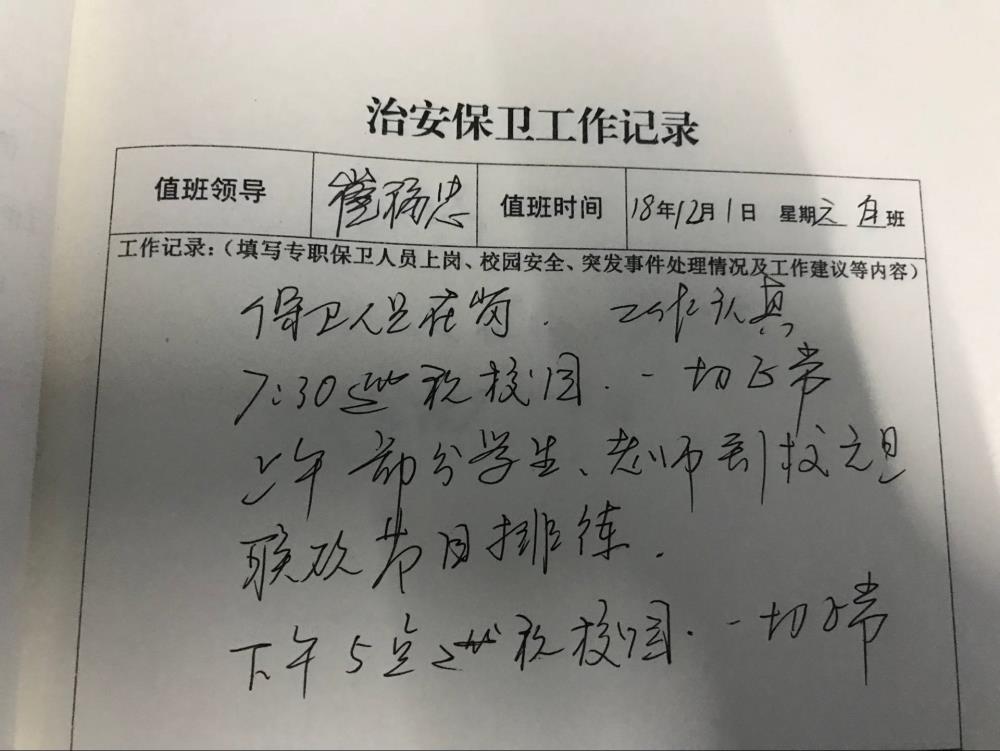 治安保卫工作记录
值班领导 崔扬忠 值班时间 18年12月1日 星期六 白班
工作记录:(填写专职保卫人员上岗、校园安全、突发事件处理情况及工作建议等内容)
保卫人员在岗. 工作认真
7:30巡视校园.一切正常
上午部分学生、老师到校元旦
联欢节目排练.
下午5点巡视校园.一切正常